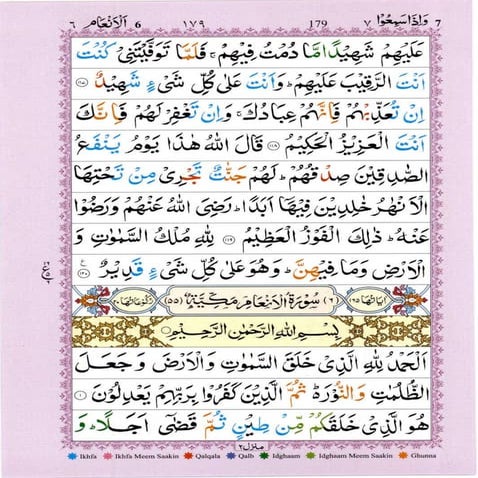 ٦ اَلۡاَنۡعَام 6 ١٧٩ 179 ٧ وَاِذَا سَمِعُوۡا 7
عَلَيۡهِمۡ شَهِيۡدًا مَّا دُمۡتُ فِيۡهِمۡ‌ۚ فَلَمَّا تَوَفَّيۡتَنِىۡ كُنۡتَ
اَنۡتَ الرَّقِيۡبَ عَلَيۡهِمۡ‌ؕ وَاَنۡتَ عَلٰى كُلِّ شَىۡءٍ شَهِيۡدٌ ﴿۱۱۷﴾
اِنۡ تُعَذِّبۡهُمۡ فَاِنَّهُمۡ عِبَادُكَ‌ۚ وَاِنۡ تَغۡفِرۡ لَهُمۡ فَاِنَّكَ
اَنۡتَ الۡعَزِيۡزُ الۡحَكِيۡمُ ﴿۱۱۸﴾ قَالَ اللّٰهُ هٰذَا يَوۡمُ يَنۡفَعُ
الصّٰدِقِيۡنَ صِدۡقُهُمۡ‌ؕ لَهُمۡ جَنّٰتٌ تَجۡرِىۡ مِنۡ تَحۡتِهَا
الۡاَنۡهٰرُ خٰلِدِيۡنَ فِيۡهَاۤ اَبَدًا‌ؕ رَضِىَ اللّٰهُ عَنۡهُمۡ وَرَضُوۡا
عَنۡهُ‌ؕ ذٰلِكَ الۡفَوۡزُ الۡعَظِيۡمُ ﴿۱۱۹﴾ لِلّٰهِ مُلۡكُ السَّمٰوٰتِ وَ
الۡاَرۡضِ وَمَا فِيۡهِنَّ‌ؕ وَهُوَ عَلٰى كُلِّ شَىۡءٍ قَدِيۡرٌ ﴿۱۲۰﴾
اٰيَاتُهَا ١٦٥ (٦) سُوۡرَةُ الۡاَنۡعَامِ مَكِّيَّةٌ (٥٥) رُكُوۡعَاتُهَا ٢٠
بِسۡمِ اللّٰهِ الرَّحۡمٰنِ الرَّحِيۡمِ
اَلۡحَمۡدُ لِلّٰهِ الَّذِىۡ خَلَقَ السَّمٰوٰتِ وَالۡاَرۡضَ وَ جَعَلَ
الظُّلُمٰتِ وَالنُّوۡرَ‌ؕ ثُمَّ الَّذِيۡنَ كَفَرُوۡا بِرَبِّهِمۡ يَعۡدِلُوۡنَ ﴿۱﴾
هُوَ الَّذِىۡ خَلَقَكُمۡ مِّنۡ طِيۡنٍ ثُمَّ قَضٰۤى اَجَلًا ؕ وَ
منزل ٢
Ikhfa Ikhfa Meem Saakin Qalqala Qalb Idghaam Idghaam Meem Saakin Ghunna